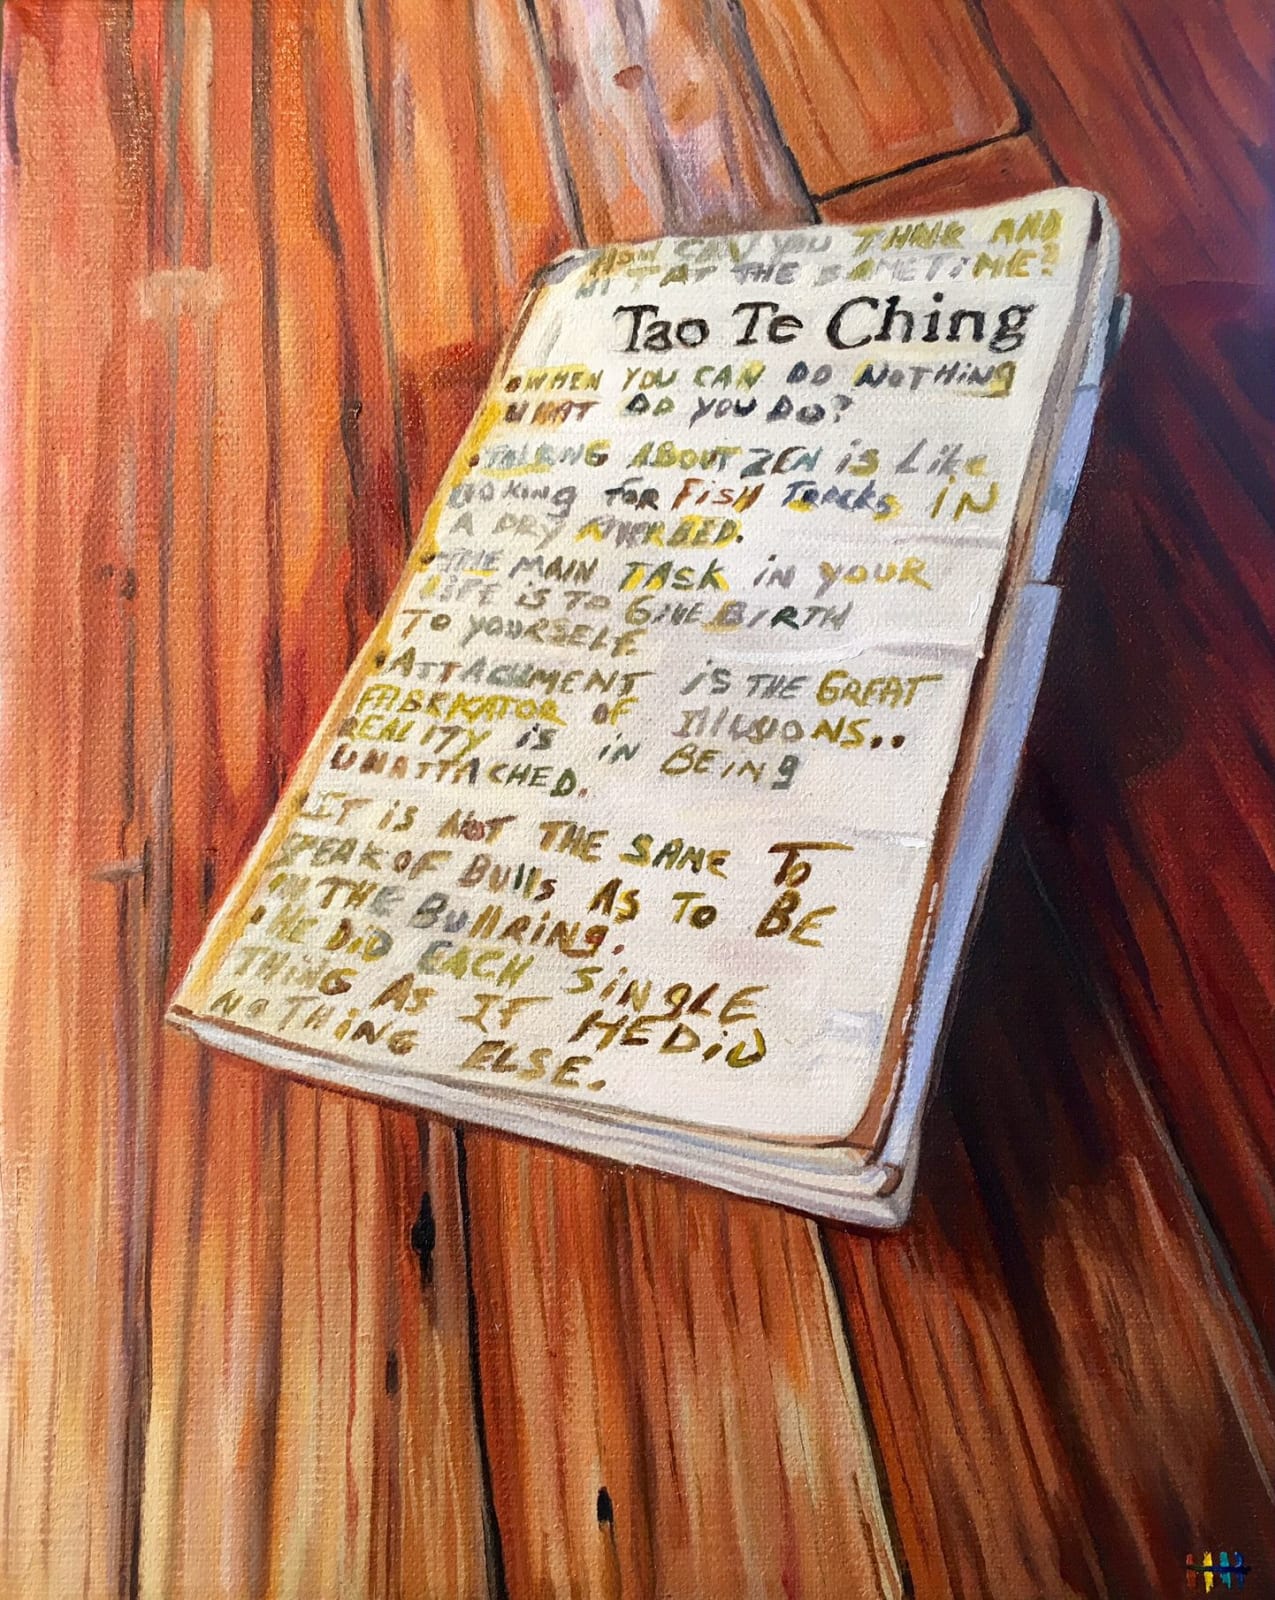 HOW CAN YOU THINK AND
HIT AT THE SAME TIME?
Tao Te Ching
• WHEN YOU CAN DO NOTHING
WHAT DO YOU DO?
• TALKING ABOUT ZEN is Like
LOOKING FOR FISH TRACKS IN
A DRY RIVERBED.
• THE MAIN TASK in YOUR
LiFE is TO GIVE BIRTH
TO YOURSELF.
• ATTACHMENT is THE GREAT
FABRICATOR OF IllUSIONS..
REALITY is in BEING
UNATTACHED.
• IT iS NOT THE SAME TO
SPEAK OF BUlls AS TO BE
IN THE BUllRING.
• HE DiD EACH SiNGLE
THiNG AS IF HE DiD
NOTHiNG ELSE.